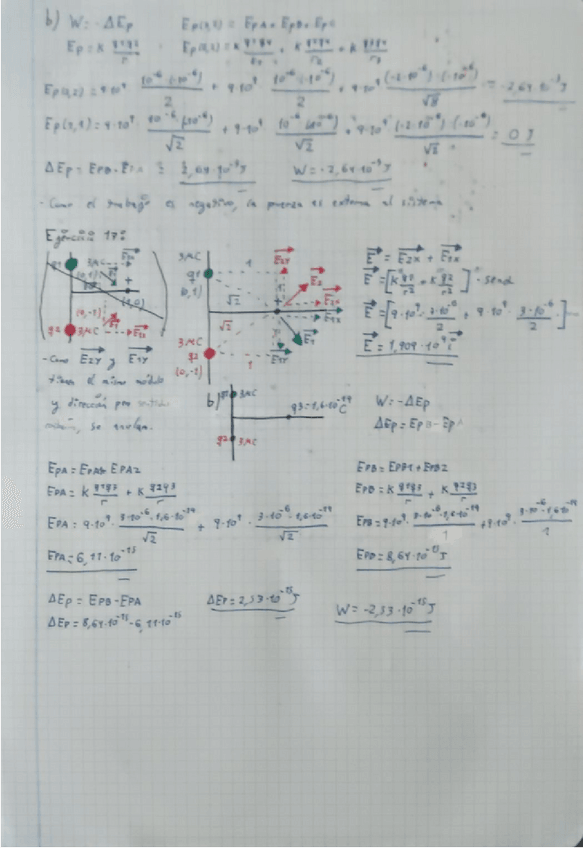 b) W = -ΔEp    Ep(0,2) = EpA + EpB + EpC
Ep = K q·q/r
Ep(0,2) = 9·10⁹ · 10⁻⁶·(·10⁻⁶)/2 + 9·10⁹ · 10⁻⁶·(·10⁻⁶)/2 + 9·10⁹ (-2·10⁻⁶)·(·10⁻⁶)/√8 = -2,64·10⁻³J
10⁻⁶ (10⁻⁶)/√2 + 9·10⁹ 10⁻⁶ (10⁻⁶)/√2 + 9·10⁹ (-2·10⁻⁶)·(·10⁻⁶)/√2 = 0J
ΔEp = EPB - EPA = 2,64·10⁻³J    W = -2,64·10⁻³J
- Como el trabajo es negativo, la fuerza es externa al sistema
Ejercicio 17:
q1 3μC (0,1) E2x (1,0) (0,-1) q2 3μC E1x
3μC q1 (0,1) 1 √2 √2 3μC q2 (0,-1) 1 E2Y E2 E2x E1x E1 E1Y
E = E2x + E1x
E = [K q1/r² + K q2/r²] ·
E = [9·10⁹ · 3·10⁻⁶/2 + 9·10⁹ · 3·10⁻⁶/2] ·
E = 1,909·10⁴
- Como E2Y y E1Y
tienen el mismo módulo
y dirección pero
se anulan.
b) q1 3μC q2 3μC q3 = 1,6·10⁻¹⁹C
W = -ΔEp
ΔEp = EpB - EpA
EPA = EPA1 + EPA2
EPA = K q1q3/r + K q2q3/r
EPA = 9·10⁹ · 3·10⁻⁶·1,6·10⁻¹⁹/√2 + 9·10⁹ · 3·10⁻⁶·1,6·10⁻¹⁹/√2
EPA = 6,11·10⁻¹⁵
EPB = EPB1 + EPB2
EPB = K q1q3/r + K q2q3/r
EPB = 9·10⁹ · 3·10⁻⁶·1,6·10⁻¹⁹/1 + 9·10⁹ · 3·10⁻⁶·1,6·10⁻¹⁹/1
EPB = 8,64·10⁻¹⁵J
ΔEp = EPB - EPA    ΔEp = 2,53·10⁻¹⁵J    W = -2,53·10⁻¹⁵J
ΔEp = 8,64·10⁻¹⁵ - 6,11·10⁻¹⁵